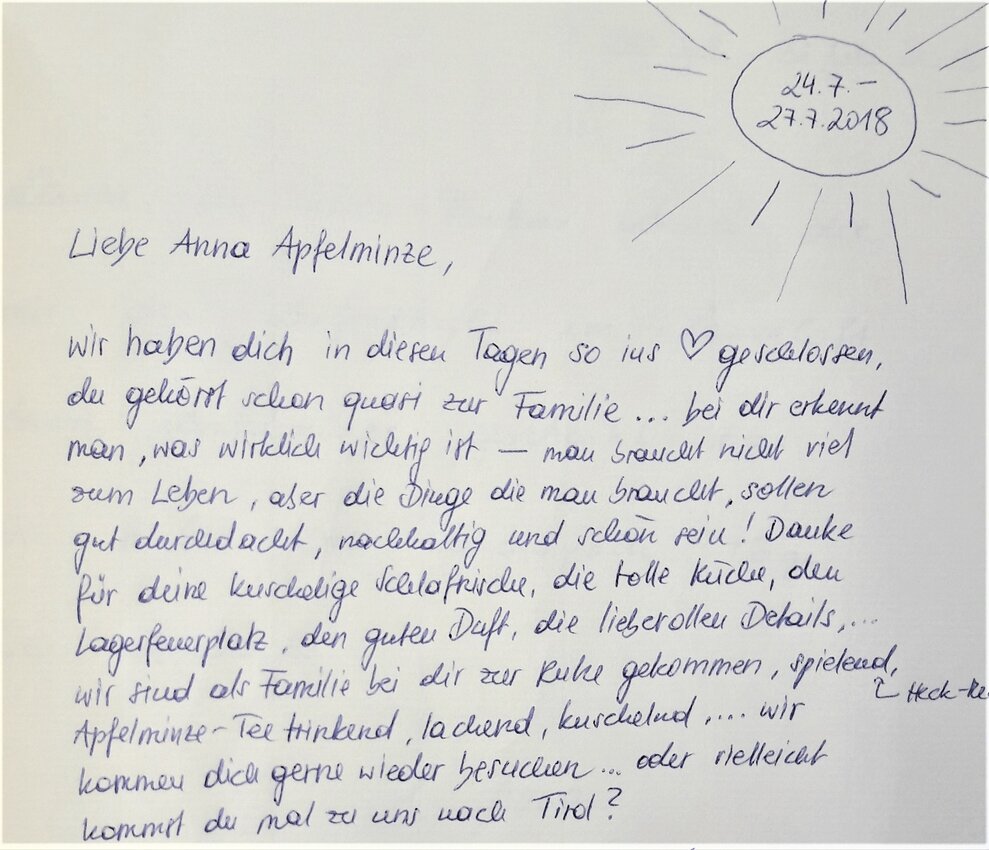 24.7.–
27.7.2018
Liebe Anna Apfelminze,
wir haben dich in diesen Tagen so ins ♡ geschlossen,
du gehörst schon quasi zur Familie... bei dir erkennt
man, was wirklich wichtig ist — man braucht nicht viel
zum Leben, aber die Dinge die man braucht, sollen
gut durchdacht, nachhaltig und schön sein! Danke
für deine kuschelige Schlafnische, die tolle Küche, den
Lagerfeuerplatz, den guten Duft, die liebevollen Details,...
wir sind als Familie bei dir zur Ruhe gekommen, spielend,
Heck-
Apfelminze-Tee trinkend, lachend, kuschelnd,... wir
kommen dich gerne wieder besuchen... oder vielleicht
kommst du mal zu uns nach Tirol?